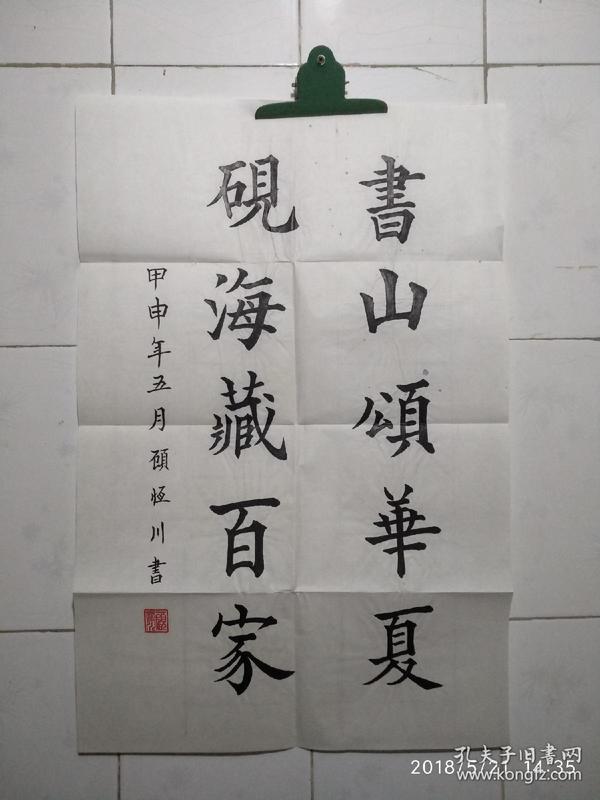 書山頌華夏
硯海藏百家
甲申年五月顾恒川書
孔夫子旧書网
2018/5/21 14:35
www.kongfz.com